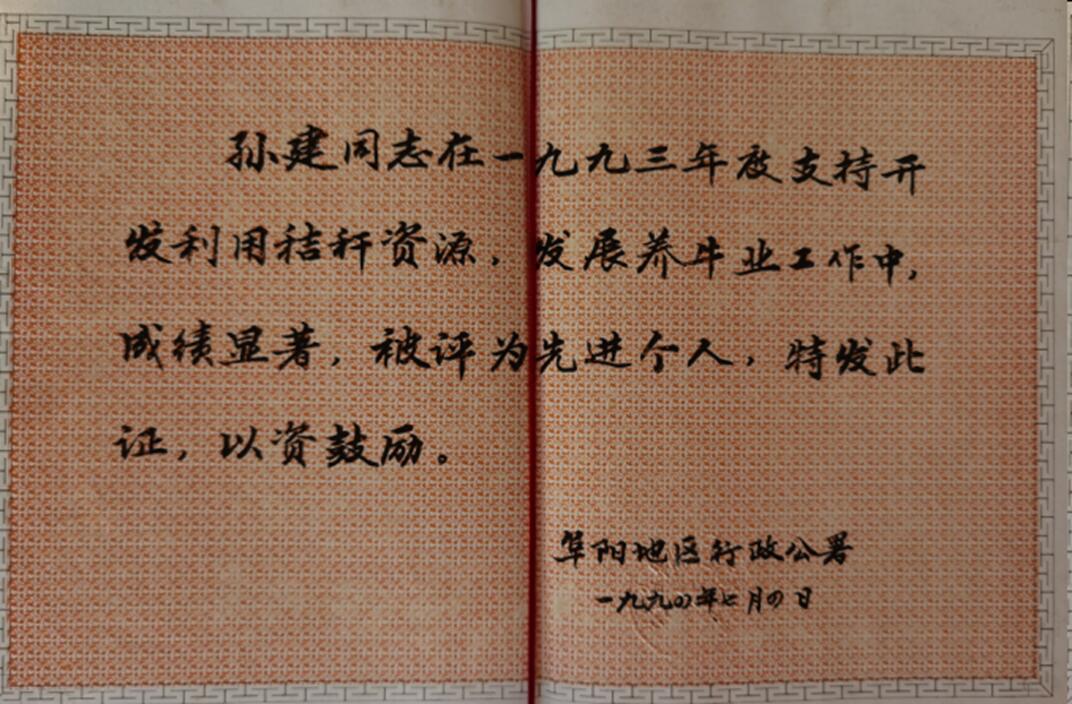 孙建同志在一九九三年度支持开
发利用秸秆资源，发展养牛业工作中，
成绩显著，被评为先进个人，特发此
证，以资鼓励。
阜阳地区行政公署
一九九四年七月四日